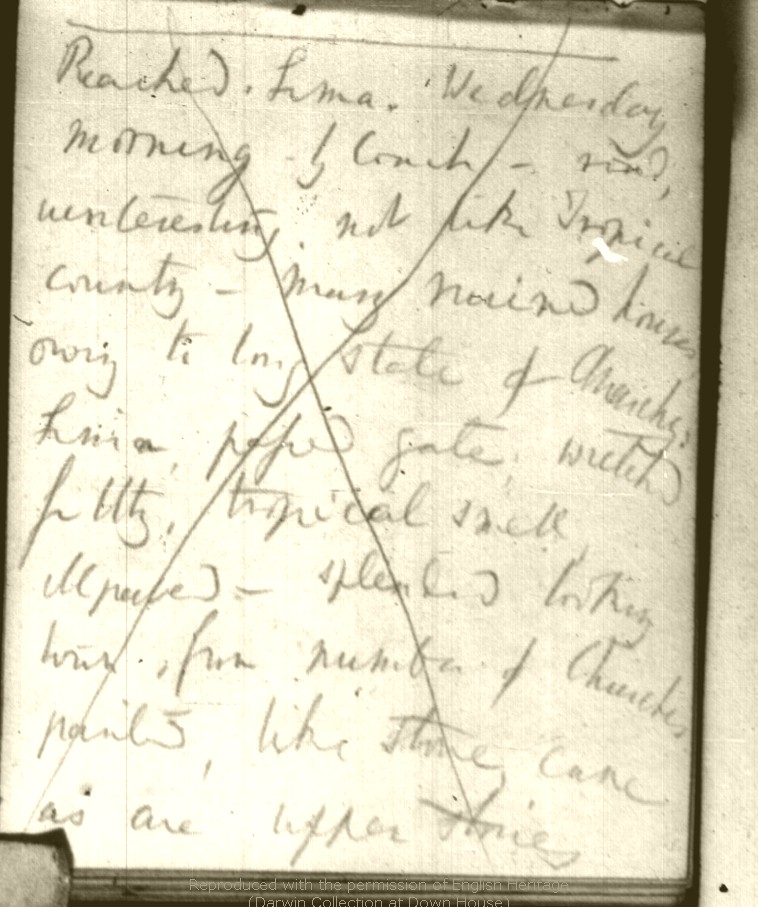 Reached. Lima. Wednesday
morning - by Coach - road,
uninteresting. not like Tropical
country - many ruined houses
owing to long state of Anarchy:
Lima, passed gate, wretched
filthy, tropical smell,
illpaved - splendid looking
town, from number of Churches
painted, like stone, cane
as are upper stories
Reproduced with the permission of English Heritage
(Darwin Collection at Down House)